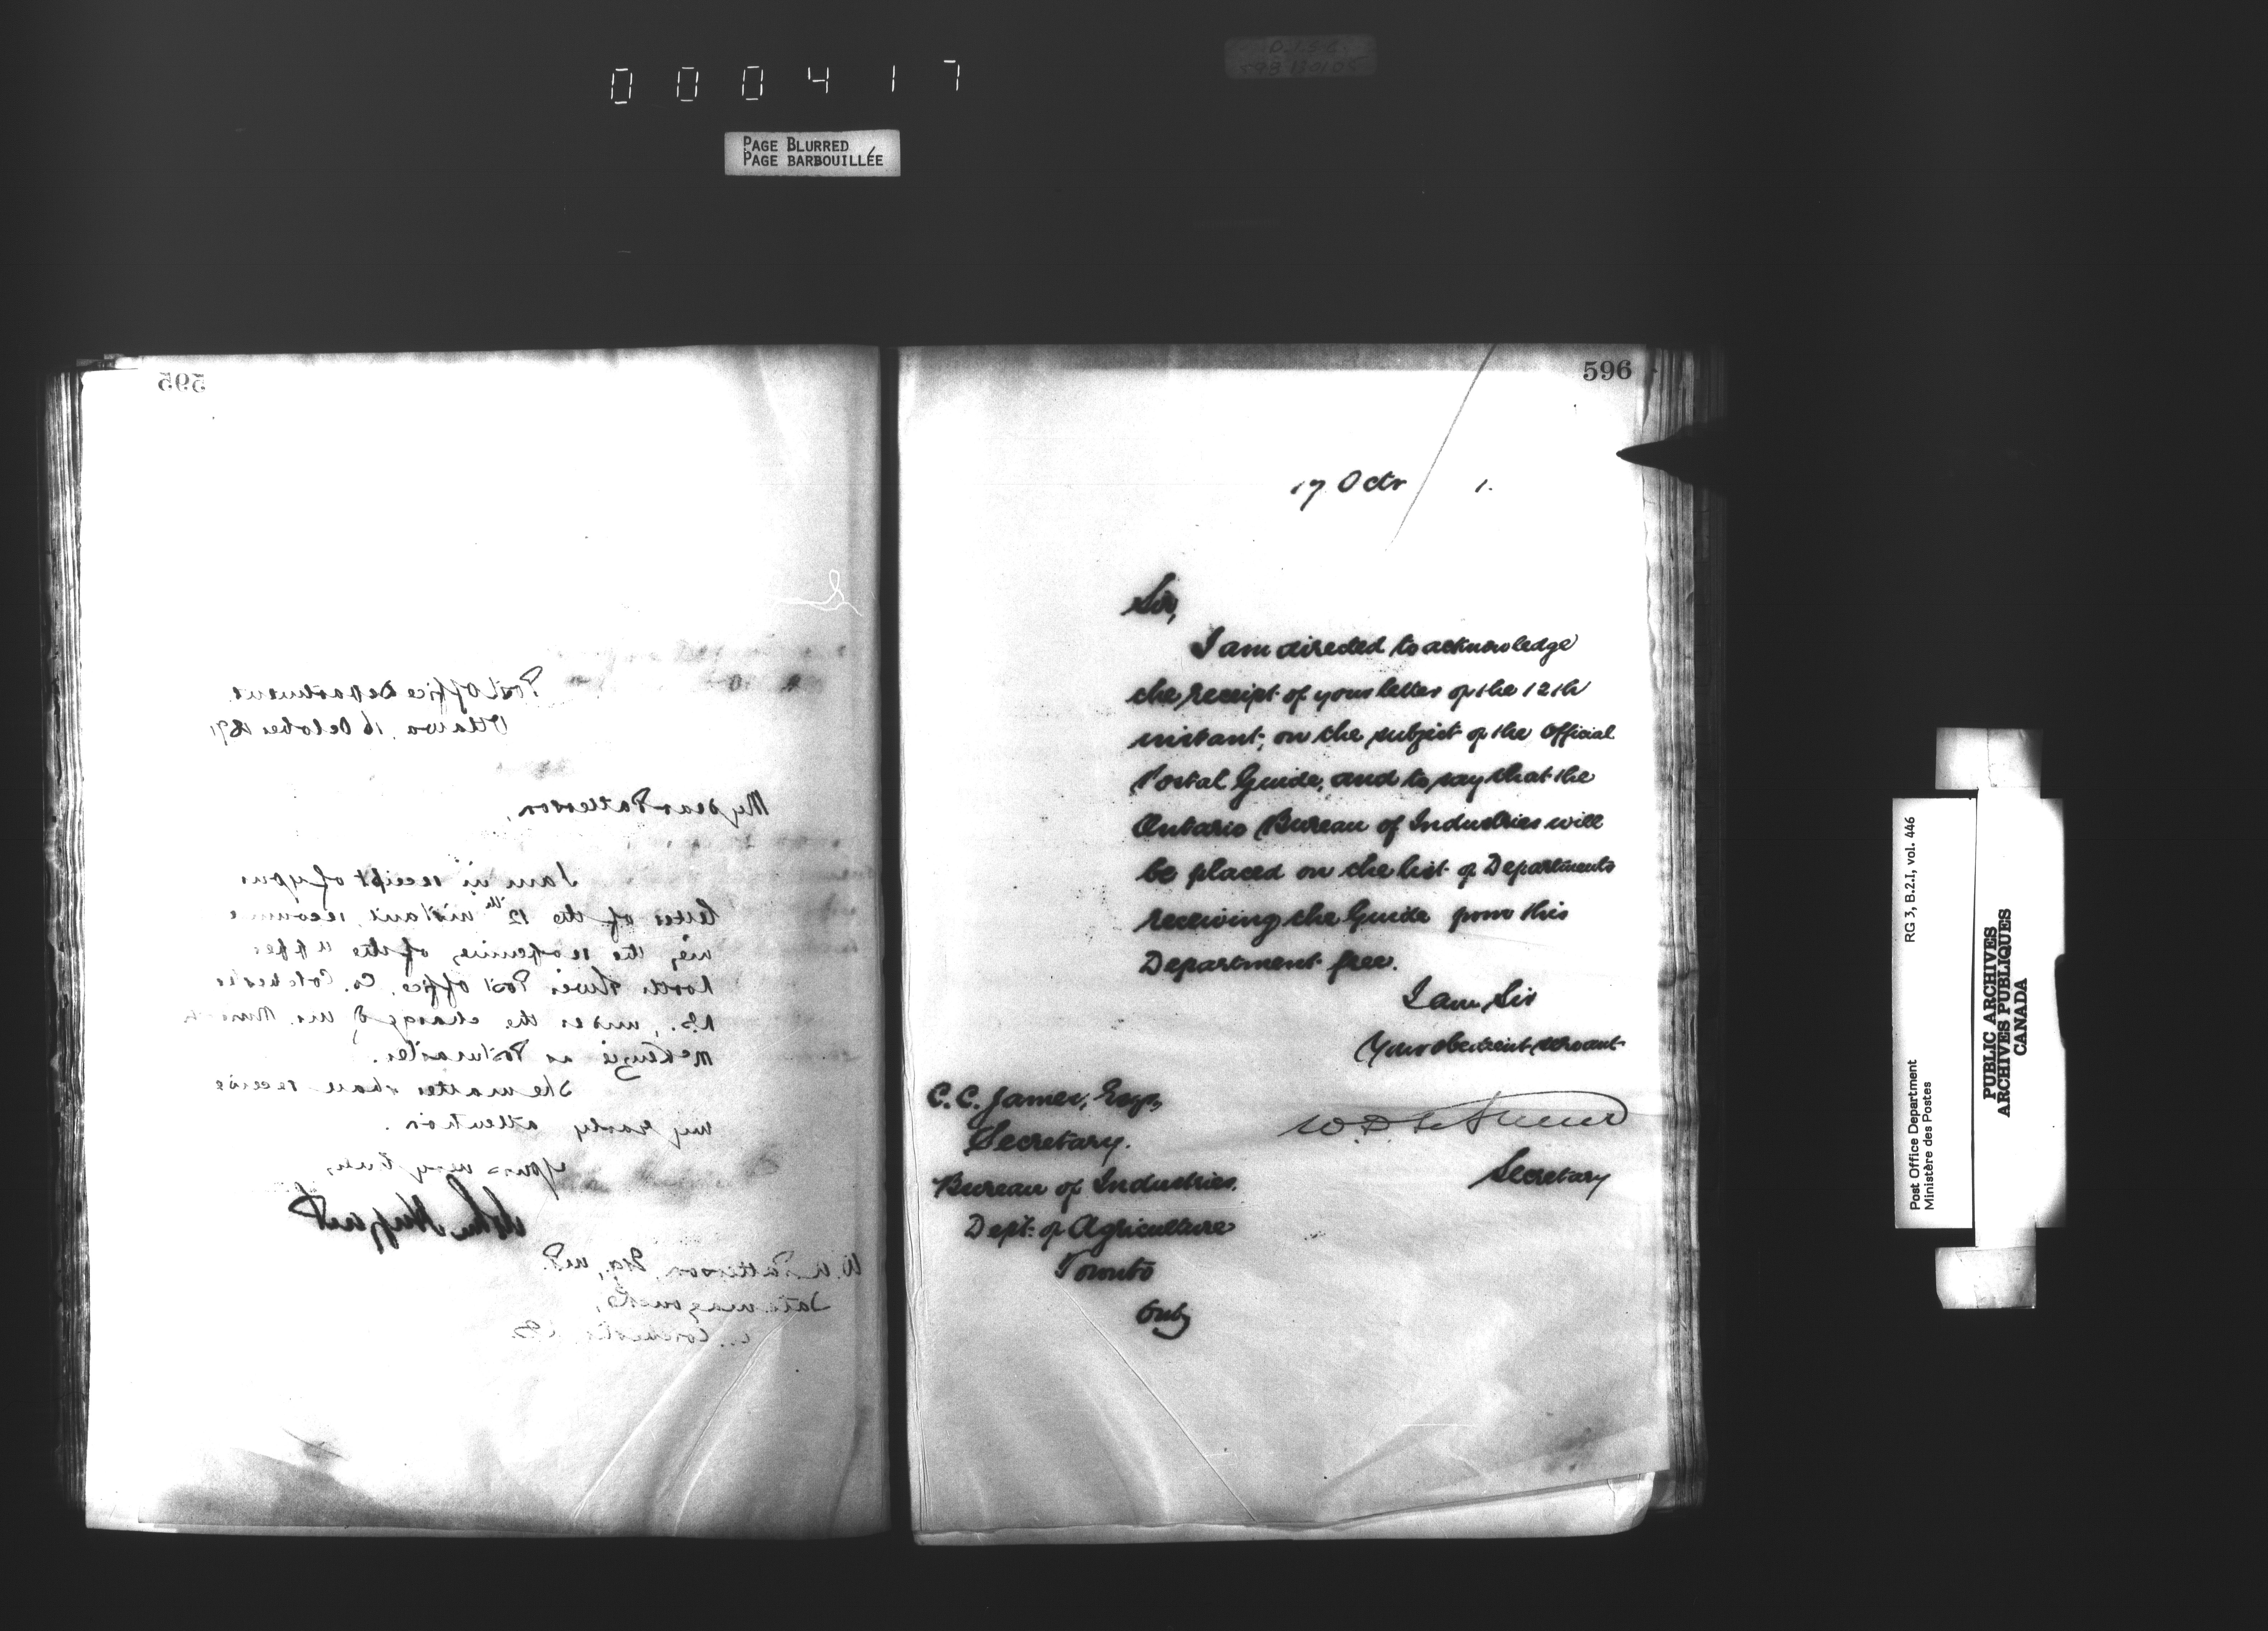 000417
PAGE BLURRED
PAGE BARBOUILLÉE
595
Post Office Department
Ottawa, 16 October 1891
My dear Patterson,
I am in receipt of your
letter of the 12th instant, recomme
ing the reopening of the Upper
North River Post Office, Co. Colchester
N.S., under the charge of Mr.
McKenzie as Postmaster.
The matter shall receive
my early attention.
Yours very truly,
John Haggart
W. A. Patterson, Esq., M.P.
Tatamagouche,
Colchester, N.S.
596
17 Octr 1.
Sir,
I am directed to acknowledge
the receipt of your letter of the 12th
instant, on the subject of the Official
Postal Guide, and to say that the
Ontario Bureau of Industries will
be placed on the list of Departments
receiving the Guide from this
Department free.
I am, Sir
Your obedient servant
W. D. LeSueur
Secretary
C. C. James, Esq.,
Secretary.
Bureau of Industries.
Dept. of Agriculture
Toronto
Ont.
RG 3, B.2.I, vol. 446
Post Office Department
Ministère des Postes
PUBLIC ARCHIVES
ARCHIVES PUBLIQUES
CANADA